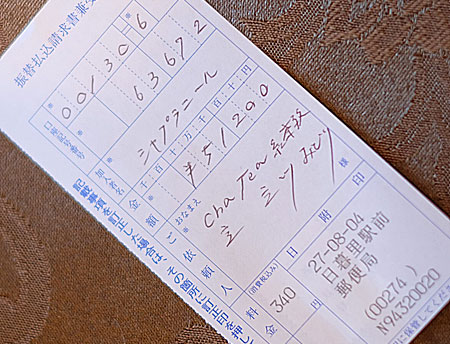 振替払込請求書兼受
口座記号番号
00130 6
63672
加入者名
シャプラニール
金額
千百十万千百十円
¥51200
ご依頼人
おなまえ
ChaTea 紅茶教室
立川みどり
様
(消費税込み)
料金
340
円
日附印
27-08-04
日暮里駅前
郵便局
(00274)
N94320020
記載事項を訂正した場合は、その箇所に訂正印を押し
に保管してくだ